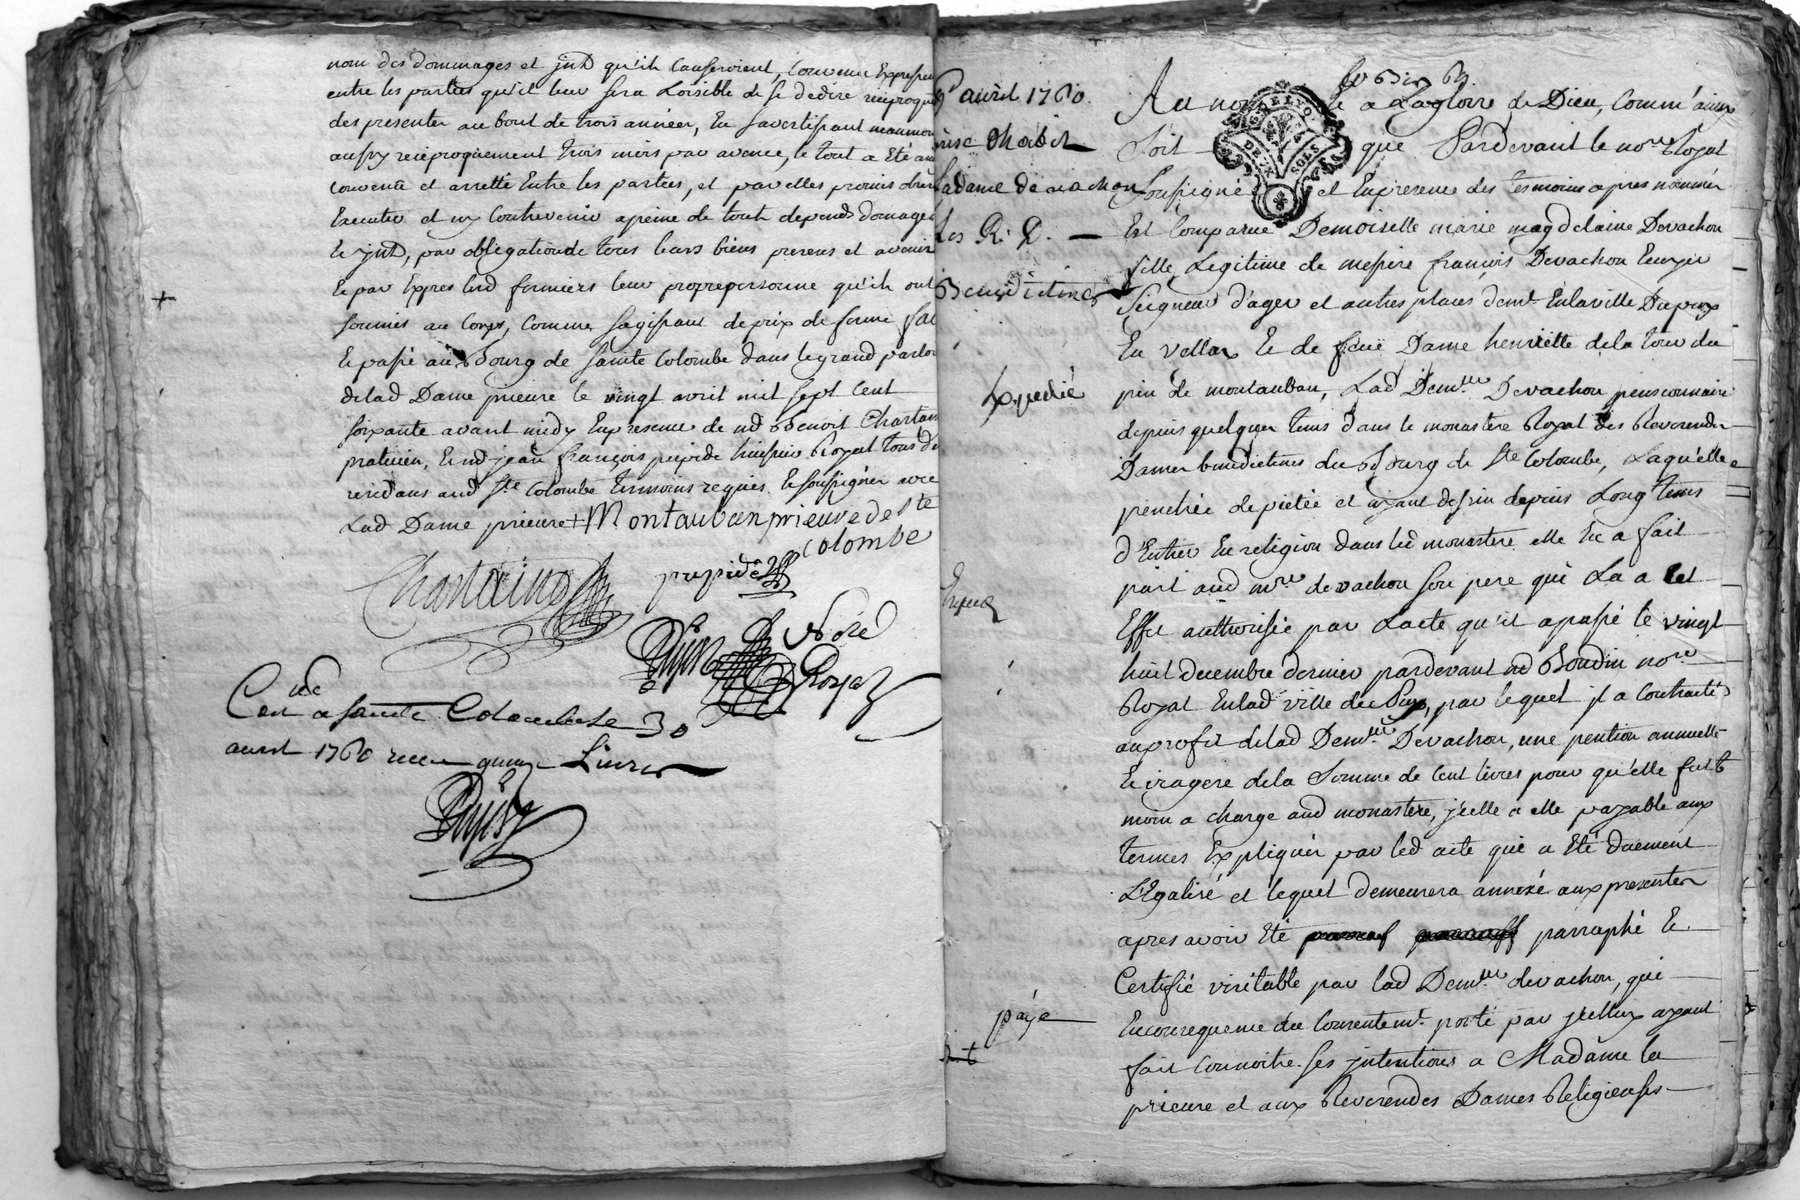 nom des dommages et jnts qu'ils causeroient, convenu Expressem
entre les parties qu'il leur sera Loisible de se dedire reciproqu
des presentes au bout de trois années, En savertissant neanmoin
aussy reciproquement trois mois par avance, le tout a Eté ain
convenu et arretté Entre les parties, et par elles promis obser
Executer et ny Contrevenir apeine de touts depends domages
Et jnts, par obligation de tous leurs biens presens et avenir
Et par Expres lesd fermiers leur propre personne qu'ils ont
soumis au Corps, Comme sagissant de prix de ferme fai
Et passé au Bourg de sainte Colombe dans le grand parloi
de lad Dame prieure le vingt avril mil sept cent
soixante avant midy En presence de md Benoit Chartain
praticien, Et md jean françois prepide huissier Royal tous d
residans aud Ste Colombe temoins requis Et soussignés avec
Lad Dame prieure + Montauban prieure de Ste
Colombe
Chartain
prepide
Dupuy
Noré
Royal
Con.né a sainte Colombe le 30
avril 1760 recu quinze Livres
Dupuy
avril 1760.
prise dhabit
Madame de vachon
Les R. D.
Benedictines
Expedié
payé
GEN. LYON
DEUX SOLS
Au nom et a La gloire de Dieu, Comm'ainsy
Soit que Pardevant le nore Royal
soussigné et En presence des temoins apres nommés
Est Comparue Demoiselle marie magdelaine Devachon
fille Legitime de messire françois Devachon Ecuyer
Seigneur d'ager et autres places demt En la ville Dupuy
En vellay Et de feue Dame henriette de la tour du
pin de montauban, Lad Demlle Devachon pensionnaire
depuis quelque tems dans le monastere Royal des Reverendes
Dames benedictines du Bourg de Ste Colombe, Laquelle
penchée de pieteé et ayant dessin depuis Long tems
d'Entrer En religion dans led monastere elle En a fait
part aud mre devachon son pere qui La a cet
Effet authorisée par Lacte qu'il a passé le vingt
huit decembre dernier pardevant md Boudin nore
Royal En lad ville du Puy, par lequel jl a Contracté
au profit de lad Demlle Devachon, une pention annuelle
Et viagere de la Somme de Cent livres pour qu'elle fut
moin a charge aud monastere, jcelle a elle payable aux
termes Expliqués par led acte qui a Eté duement
Legalisé et lequel demeurera annexé aux presentes
apres avoir Eté parraphé Et
Certifié veritable par lad Demlle devachon, qui
En consequence du Consentemt porté par jcelluy ayant
fait connoitre ses jntentions a Madame la
prieure et aux Reverendes Dames Religieuses